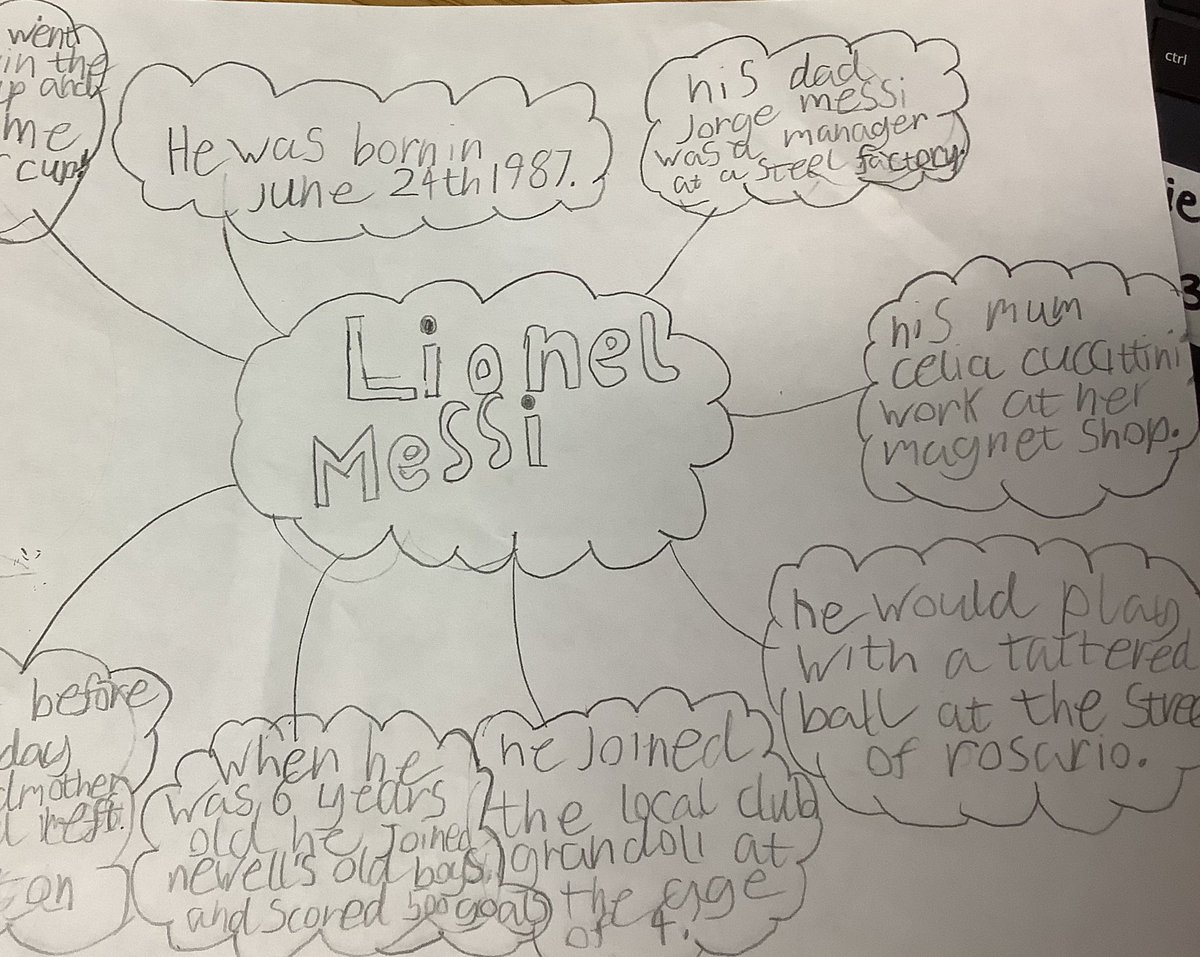 went
in the
p and
me
cup!
He was born in
june 24th 1987.
his dad
Jorge messi
was a manager
at a steel factory.
ctrl
Lionel
Messi
his mum
celia cuccittini
work at her
magnet shop.
he would play
with a tattered
ball at the stree
of rosario.
he joined
the local club
grandoli at
the age
of 4.
when he
was 6 years
old he joined
newell's old boys
and scored 500 goals
before
day
dmother
left.
on